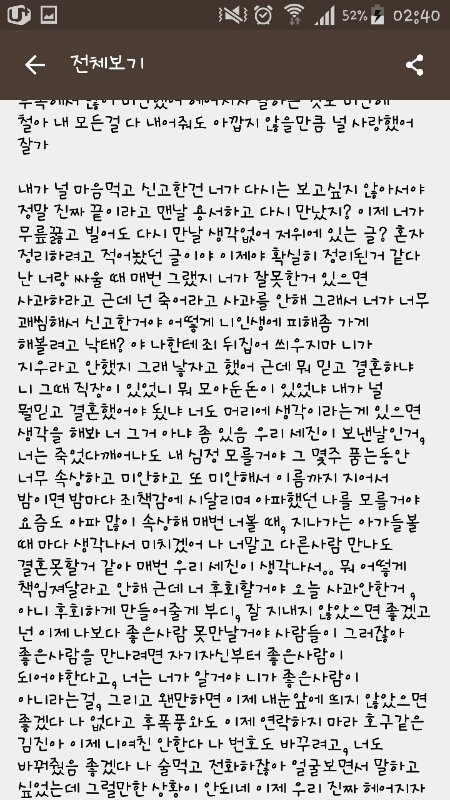 52% 02:40
전체보기
철아 내 모든걸 다 내어줘도 아깝지 않을만큼 널 사랑했어
잘가
내가 널 마음먹고 신고한건 너가 다시는 보고싶지 않아서야
정말 진짜 끝이라고 맨날 용서하고 다시 만났지? 이제 너가
무릎꿇고 빌어도 다시 만날 생각없어 저위에 있는 글? 혼자
정리하려고 적어놨던 글이야 이제야 확실히 정리된거 같다
난 너랑 싸울 때 매번 그랬지 너가 잘못한거 있으면
사과하라고 근데 넌 죽어라고 사과를 안해 그래서 너가 너무
괘씸해서 신고한거야 어떻게 니인생에 피해좀 가게
해볼려고 낙태? 야 나한테 죄 뒤집어 씌우지마 니가
지우라고 안했지 그래 낳자고 했어 근데 뭐 믿고 결혼하냐
니 그때 직장이 있었니 뭐 모아둔돈이 있었냐 내가 널
뭘믿고 결혼했어야 됬냐 너도 머리에 생각이라는게 있으면
생각을 해봐 너 그거 아냐 좀 있음 우리 세진이 보낸날인거,
너는 죽었다깨어나도 내 심정 모를거야 그 몇주 품는동안
너무 속상하고 미안하고 또 미안해서 이름까지 지어서
밤이면 밤마다 죄책감에 시달리며 아파했던 나를 모를거야
요즘도 아파 많이 속상해 매번 너볼 때, 지나가는 아가들볼
때 마다 생각나서 미치겠어 나 너말고 다른사람 만나도
결혼못할거 같아 매번 우리 세진이 생각나서.. 뭐 어떻게
책임져달라고 안해 근데 너 후회할거야 오늘 사과안한거 ,
아니 후회하게 만들어줄게 부디, 잘 지내지 않았으면 좋겠고
넌 이제 나보다 좋은사람 못만날거야 사람들이 그러잖아
좋은사람을 만나려면 자기자신부터 좋은사람이
되어야한다고, 너는 너가 알거야 니가 좋은사람이
아니라는걸, 그리고 왠만하면 이제 내눈앞에 띄지 않았으면
좋겠다 나 없다고 후폭풍와도 이제 연락하지 마라 호구같은
김진아 이제 니여친 안한다 나 번호도 바꾸려고, 너도
바꿔줬음 좋겠다 나 술먹고 전화하잖아 얼굴보면서 말하고
싶었는데 그럴만한 상황이 안되네 이제 우리 진짜 헤어지자